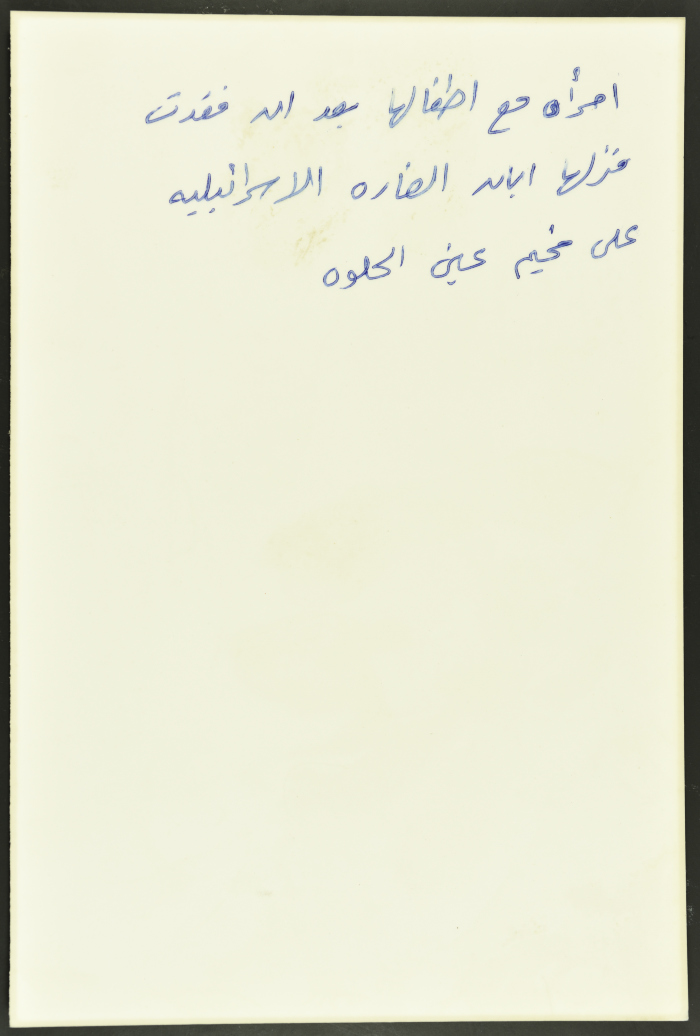 امرأه مع اطفالها بعد ان فقدت
منزلها ابان الغاره الاسرائيليه
على مخيم عين الحلوه